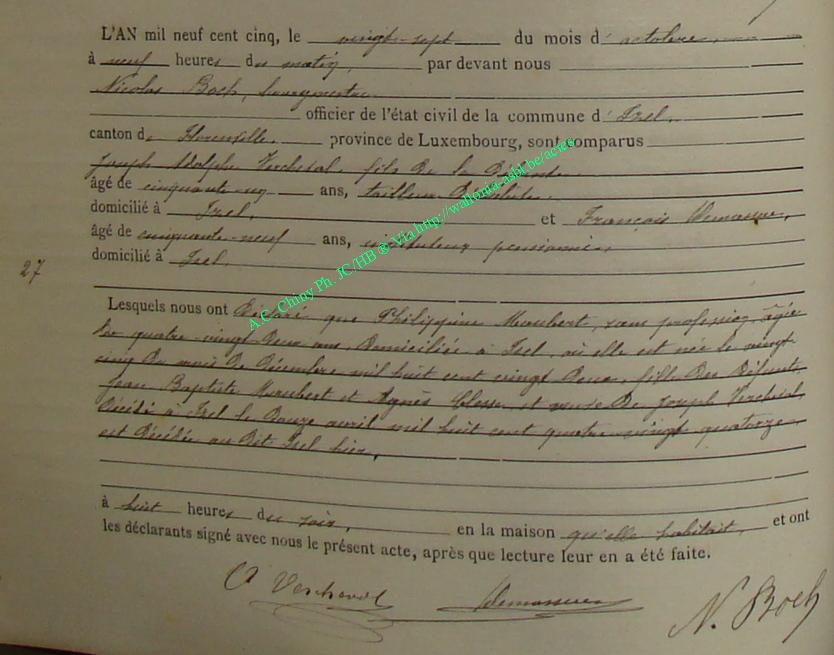 L'AN mil neuf cent cinq, le vingt-sept du mois d'octobre,
à neuf heures du matin, par devant nous
Nicolas Boch, bourgmestre
officier de l'état civil de la commune d'Izel,
canton de Florenville, province de Luxembourg, sont comparus
Joseph Adolphe Vercheval, fils de la défunte
âgé de cinquante-un ans, tailleur d'habits,
domicilié à Izel, et François Demasure,
âgé de cinquante-neuf ans, instituteur pensionné,
domicilié à Izel,
27
Lesquels nous ont déclaré que Philippine Maubert, sans profession, âgée
de quatre-vingt-deux ans, domiciliée à Izel, où elle est née le vingt
cinq du mois de décembre mil huit cent vingt deux, fille des défunts
Jean Baptiste Maubert et Agnès et veuve de Joseph Vercheval,
décédé à Izel le douze avril mil huit cent quatre-vingt quatorze
est décédée au dit Izel hier,
à huit heures du soir, en la maison qu'elle habitait, et ont
les déclarants signé avec nous le présent acte, après que lecture leur en a été faite.
A Vercheval
N. Boch
A.C. Chiny Ph. JC/HB ® Via http://wallonia-asbl.be/actes